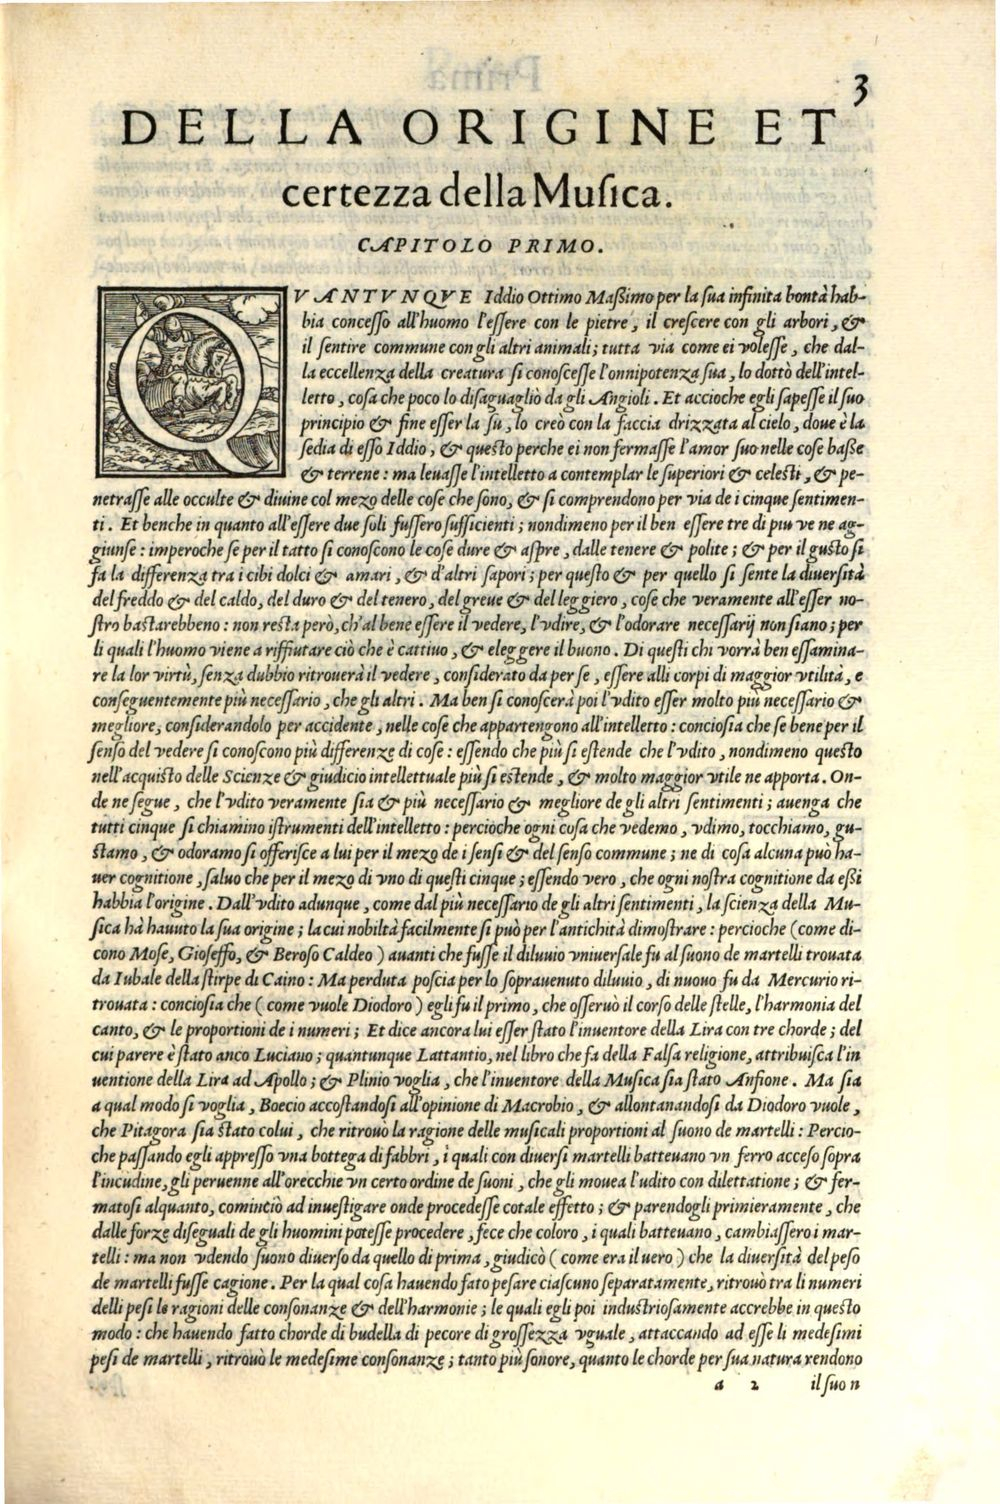 3
DELLA ORIGINE ET
certezza della Muſica.
CAPITOLO PRIMO.
QVANTVNQVE Iddio Ottimo Maßimo per la ſua infinita bontà hab-
bia conceſſo all'huomo l'eſſere con le pietre, il creſcere con gli arbori, &
il ſentire commune con gli altri animali; tutta via come ei voleſſe, che dal-
la eccellenza della creatura ſi conoſceſſe l'onnipotenza ſua, lo dottò dell'intel-
letto, coſa che poco lo diſaguagliò da gli Angioli. Et accioche egli ſapeſſe il ſuo
principio & fine eſſer la ſu, lo creò con la faccia drizzata al cielo, doue è la
ſedia di eſſo Iddio, & queſto perche ei non fermaſſe l'amor ſuo nelle coſe baſſe
& terrene: ma leuaſſe l'intelletto a contemplar le ſuperiori & celeſti, & pe-
netraſſe alle occulte & diuine col mezo delle coſe che ſono, & ſi comprendono per via de i cinque ſentimen-
ti. Et benche in quanto all'eſſere due ſoli fuſſero ſufficienti; nondimeno per il ben eſſere tre di piu ve ne ag-
giunſe: imperoche ſe per il tatto ſi conoſcono le coſe dure & aſpre, dalle tenere & polite; & per il guſto ſi
fa la differenza tra i cibi dolci & amari, & d'altri ſapori; per queſto & per quello ſi ſente la diuerſità
del freddo & del caldo, del duro & del tenero, del greue & del leggiero, coſe che veramente all'eſſer no-
ſtro baſtarebbeno: non reſta però, ch'al bene eſſere il vedere, l'vdire, & l'odorare neceſſarij non ſiano; per
li quali l'huomo viene a riffiutare ciò che è cattiuo, & eleggere il buono. Di queſti chi vorrà ben eſſamina-
re la lor virtù, ſenza dubbio ritrouerà il vedere, conſiderato da per ſe, eſſere alli corpi di maggior vtilità, e
conſeguentemente più neceſſario, che gli altri. Ma ben ſi conoſcerà poi l'vdito eſſer molto più neceſſario &
megliore, conſiderandolo per accidente, nelle coſe che appartengono all'intelletto: concioſia che ſe bene per il
ſenſo del vedere ſi conoſcono più differenze di coſe: eſſendo che più ſi eſtende che l'vdito, nondimeno queſto
nell'acquiſto delle Scienze & giudicio intellettuale più ſi eſtende, & molto maggior vtile ne apporta. On-
de ne ſegue, che l'vdito veramente ſia & più neceſſario & megliore de gli altri ſentimenti; auenga che
tutti cinque ſi chiamino iſtrumenti dell'intelletto: percioche ogni coſa che vedemo, vdimo, tocchiamo, gu-
ſtamo, & odoramo ſi offeriſce a lui per il mezo de i ſenſi & del ſenſo commune; ne di coſa alcuna può ha-
uer cognitione, ſaluo che per il mezo di vno di queſti cinque; eſſendo vero, che ogni noſtra cognitione da eßi
habbia l'origine. Dall'vdito adunque, come dal più neceſſario de gli altri ſentimenti, la ſcienza della Mu-
ſica hà hauuto la ſua origine; la cui nobiltà facilmente ſi può per l'antichità dimoſtrare: percioche (come di-
cono Moſe, Gioſeffo, & Beroſo Caldeo) auanti che fuſſe il diluuio vniuerſale fu al ſuono de martelli trouata
da Iubale della ſtirpe di Caino: Ma perduta poſcia per lo ſoprauenuto diluuio, di nuouo fu da Mercurio ri-
trouata: concioſia che (come vuole Diodoro) egli fu il primo, che oſſeruò il corſo delle ſtelle, l'harmonia del
canto, & le proportioni de i numeri; Et dice ancora lui eſſer ſtato l'inuentore della Lira con tre chorde; del
cui parere è ſtato anco Luciano; quantunque Lattantio, nel libro che fa della Falſa religione, attribuiſca l'in
uentione della Lira ad Apollo; & Plinio voglia, che l'inuentore della Muſica ſia ſtato Anfione. Ma ſia
a qual modo ſi voglia, Boecio accoſtandoſi all'opinione di Macrobio, & allontanandoſi da Diodoro vuole,
che Pitagora ſia ſtato colui, che ritrouò la ragione delle muſicali proportioni al ſuono de martelli: Percio-
che paſſando egli appreſſo vna bottega di fabbri, i quali con diuerſi martelli batteuano vn ferro acceſo ſopra
l'incudine, gli peruenne all'orecchie vn certo ordine de ſuoni, che gli mouea l'udito con dilettatione; & fer-
matoſi alquanto, cominciò ad inueſtigare onde procedeſſe cotale effetto; & parendogli primieramente, che
dalle forze diſeguali de gli huomini poteſſe procedere, fece che coloro, i quali batteuano, cambiaſſero i mar-
telli: ma non vdendo ſuono diuerſo da quello di prima, giudicò (come era il vero) che la diuerſità del peſo
de martelli fuſſe cagione. Per la qual coſa hauendo fato peſare ciaſcuno ſeparatamente, ritrouò tra li numeri
delli peſi le ragioni delle conſonanze & dell'harmonie; le quali egli poi induſtrioſamente accrebbe in queſto
modo: che hauendo fatto chorde di budella di pecore di groſſezza vguale, attaccando ad eſſe li medeſimi
peſi de martelli, ritrouò le medeſime conſonanze; tanto più ſonore, quanto le chorde per ſua natura rendono
a 2 il ſuon